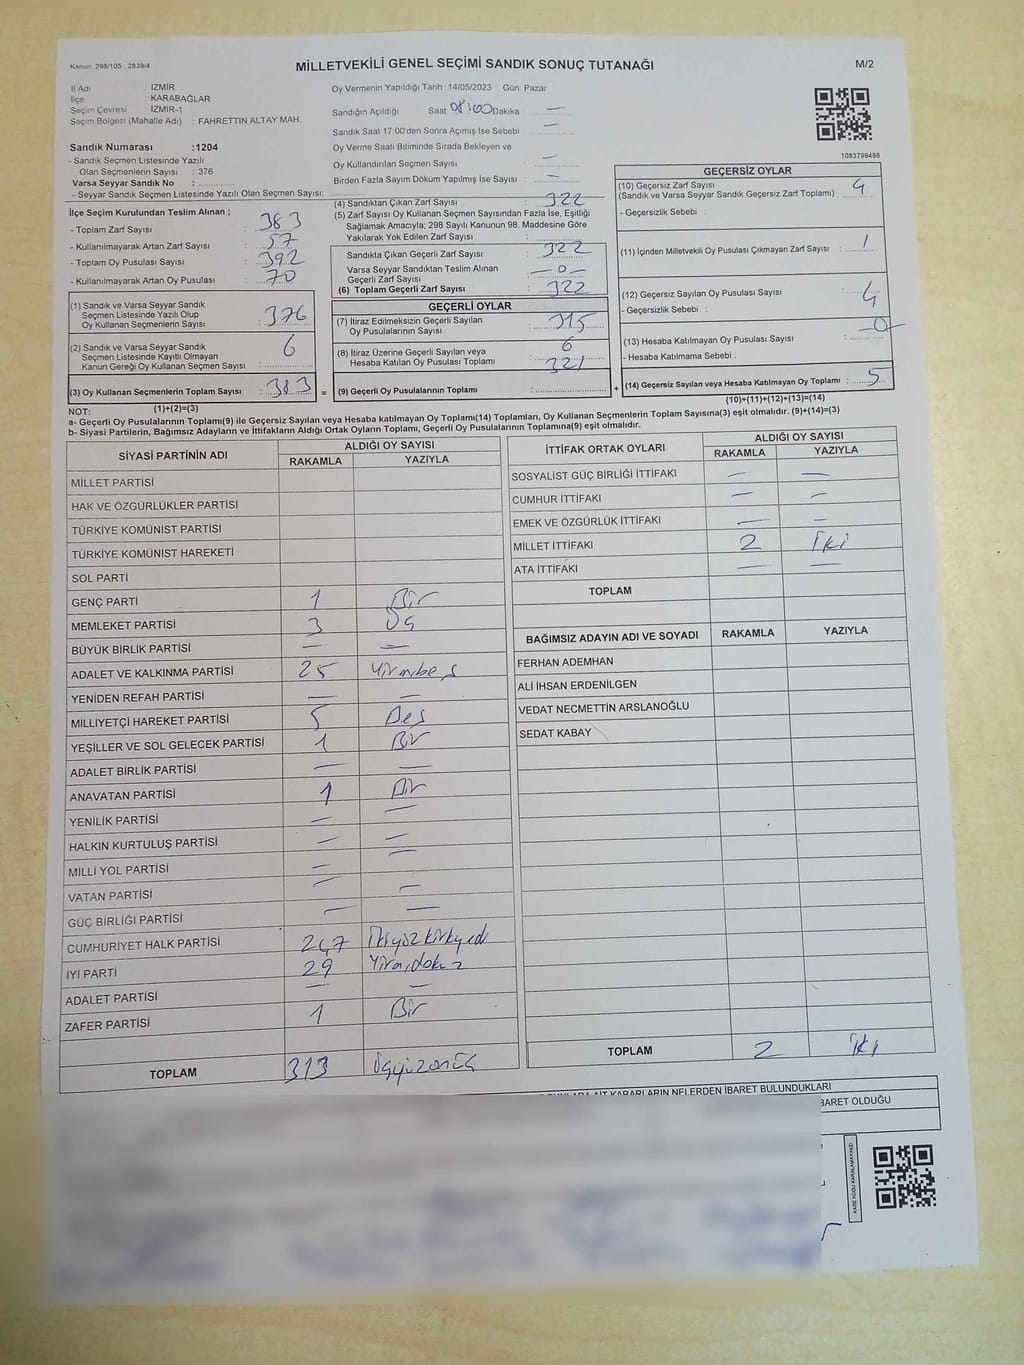 Kanun: 298/105 , 2839/4
MİLLETVEKİLİ GENEL SEÇİMİ SANDIK SONUÇ TUTANAĞI
M/2
İl Adı : İZMİR
İlçe : KARABAĞLAR
Seçim Çevresi : İZMİR-1
Seçim Bölgesi (Mahalle Adı) : FAHRETTİN ALTAY MAH.
Sandık Numarası :1204
- Sandık Seçmen Listesinde Yazılı
Olan Seçmenlerin Sayısı : 376
Varsa Seyyar Sandık No :
- Seyyar Sandık Seçmen Listesinde Yazılı Olan Seçmen Sayısı:
Oy Vermenin Yapıldığı Tarih :14/05/2023 Gün: Pazar
Sandığın Açıldığı Saat 08:00 Dakika —
Sandık Saat 17.00'den Sonra Açımış İse Sebebi —
Oy Verme Saati Bitiminde Sırada Bekleyen ve
Oy Kullandırılan Seçmen Sayısı —
Birden Fazla Sayım Döküm Yapılmış İse Sayısı : —
1083799498
İlçe Seçim Kurulundan Teslim Alınan ;
- Toplam Zarf Sayısı : 383
- Kullanılmayarak Artan Zarf Sayısı : 57
- Toplam Oy Pusulası Sayısı : 392
- Kullanılmayarak Artan Oy Pusulası : 70
(1) Sandık ve Varsa Seyyar Sandık
Seçmen Listesinde Yazılı Olup
Oy Kullanan Seçmenlerin Sayısı : 376
(2) Sandık ve Varsa Seyyar Sandık
Seçmen Listesinde Kayıtlı Olmayan
Kanun Gereği Oy Kullanan Seçmen Sayısı : 6
(3) Oy Kullanan Seçmenlerin Toplam Sayısı : 383 =
(1)+(2)=(3)
(4) Sandıktan Çıkan Zarf Sayısı : 322
(5) Zarf Sayısı Oy Kullanan Seçmen Sayısından Fazla İse, Eşitliği
Sağlamak Amacıyla; 298 Sayılı Kanunun 98. Maddesine Göre
Yakılarak Yok Edilen Zarf Sayısı :
Sandıkta Çıkan Geçerli Zarf Sayısı : 322
Varsa Seyyar Sandıktan Teslim Alınan
Geçerli Zarf Sayısı : —0—
(6) Toplam Geçerli Zarf Sayısı : 322
GEÇERLİ OYLAR
(7) İtiraz Edilmeksizin Geçerli Sayılan
Oy Pusulalarının Sayısı : 315
(8) İtiraz Üzerine Geçerli Sayılan veya
Hesaba Katılan Oy Pusulası Toplamı : 6
321
(9) Geçerli Oy Pusulalarının Toplamı : +
GEÇERSİZ OYLAR
(10) Geçersiz Zarf Sayısı
(Sandık ve Varsa Seyyar Sandık Geçersiz Zarf Toplamı) :
- Geçersizlik Sebebi :
(11) İçinden Milletvekili Oy Pusulası Çıkmayan Zarf Sayısı : 1
(12) Geçersiz Sayılan Oy Pusulası Sayısı : 4
- Geçersizlik Sebebi :
(13) Hesaba Katılmayan Oy Pusulası Sayısı : —0—
- Hesaba Katılmama Sebebi :
(14) Geçersiz Sayılan veya Hesaba Katılmayan Oy Toplamı : 5
(10)+(11)+(12)+(13)=(14)
NOT:
a- Geçerli Oy Pusulalarının Toplamı(9) ile Geçersiz Sayılan veya Hesaba katılmayan Oy Toplamı(14) Toplamları, Oy Kullanan Seçmenlerin Toplam Sayısına(3) eşit olmalıdır. (9)+(14)=(3)
b- Siyasi Partilerin, Bağımsız Adayların ve İttifakların Aldığı Ortak Oyların Toplamı, Geçerli Oy Pusulalarının Toplamına(9) eşit olmalıdır.
SİYASİ PARTİNİN ADI
ALDIĞI OY SAYISI
RAKAMLA YAZIYLA
MİLLET PARTİSİ
HAK VE ÖZGÜRLÜKLER PARTİSİ
TÜRKİYE KOMÜNİST PARTİSİ
TÜRKİYE KOMÜNİST HAREKETİ
SOL PARTİ
GENÇ PARTİ 1 Bir
MEMLEKET PARTİSİ 3 Üç
BÜYÜK BİRLİK PARTİSİ — —
ADALET VE KALKINMA PARTİSİ 25 Yirmibeş
YENİDEN REFAH PARTİSİ — —
MİLLİYETÇİ HAREKET PARTİSİ 5 Beş
YEŞİLLER VE SOL GELECEK PARTİSİ 1 Bir
ADALET BİRLİK PARTİSİ — —
ANAVATAN PARTİSİ 1 Bir
YENİLİK PARTİSİ — —
HALKIN KURTULUŞ PARTİSİ — —
MİLLİ YOL PARTİSİ — —
VATAN PARTİSİ — —
GÜÇ BİRLİĞİ PARTİSİ — —
CUMHURİYET HALK PARTİSİ 247 İkiyüzkırkyedi
İYİ PARTİ 29 Yirmidokuz
ADALET PARTİSİ — —
ZAFER PARTİSİ 1 Bir
TOPLAM 313 Üçyüzonüç
İTTİFAK ORTAK OYLARI
ALDIĞI OY SAYISI
RAKAMLA YAZIYLA
SOSYALİST GÜÇ BİRLİĞİ İTTİFAKI — —
CUMHUR İTTİFAKI — —
EMEK VE ÖZGÜRLÜK İTTİFAKI — —
MİLLET İTTİFAKI 2 İki
ATA İTTİFAKI — —
TOPLAM
BAĞIMSIZ ADAYIN ADI VE SOYADI RAKAMLA YAZIYLA
FERHAN ADEMHAN
ALİ İHSAN ERDENİLGEN
VEDAT NECMETTİN ARSLANOĞLU
SEDAT KABAY
TOPLAM 2 İki
KARARLARIN NELERDEN İBARET BULUNDUKLARI
İBARET OLDUĞU
KARE KODU KARALAMAYINIZ!